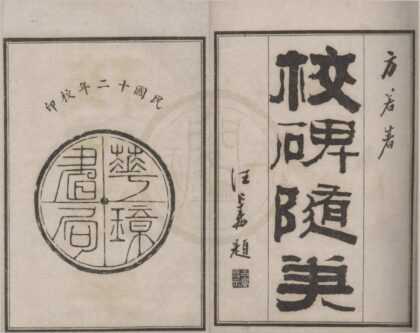 方若著
校碑隨筆
汪 題
民國十二年校印
華璋書局